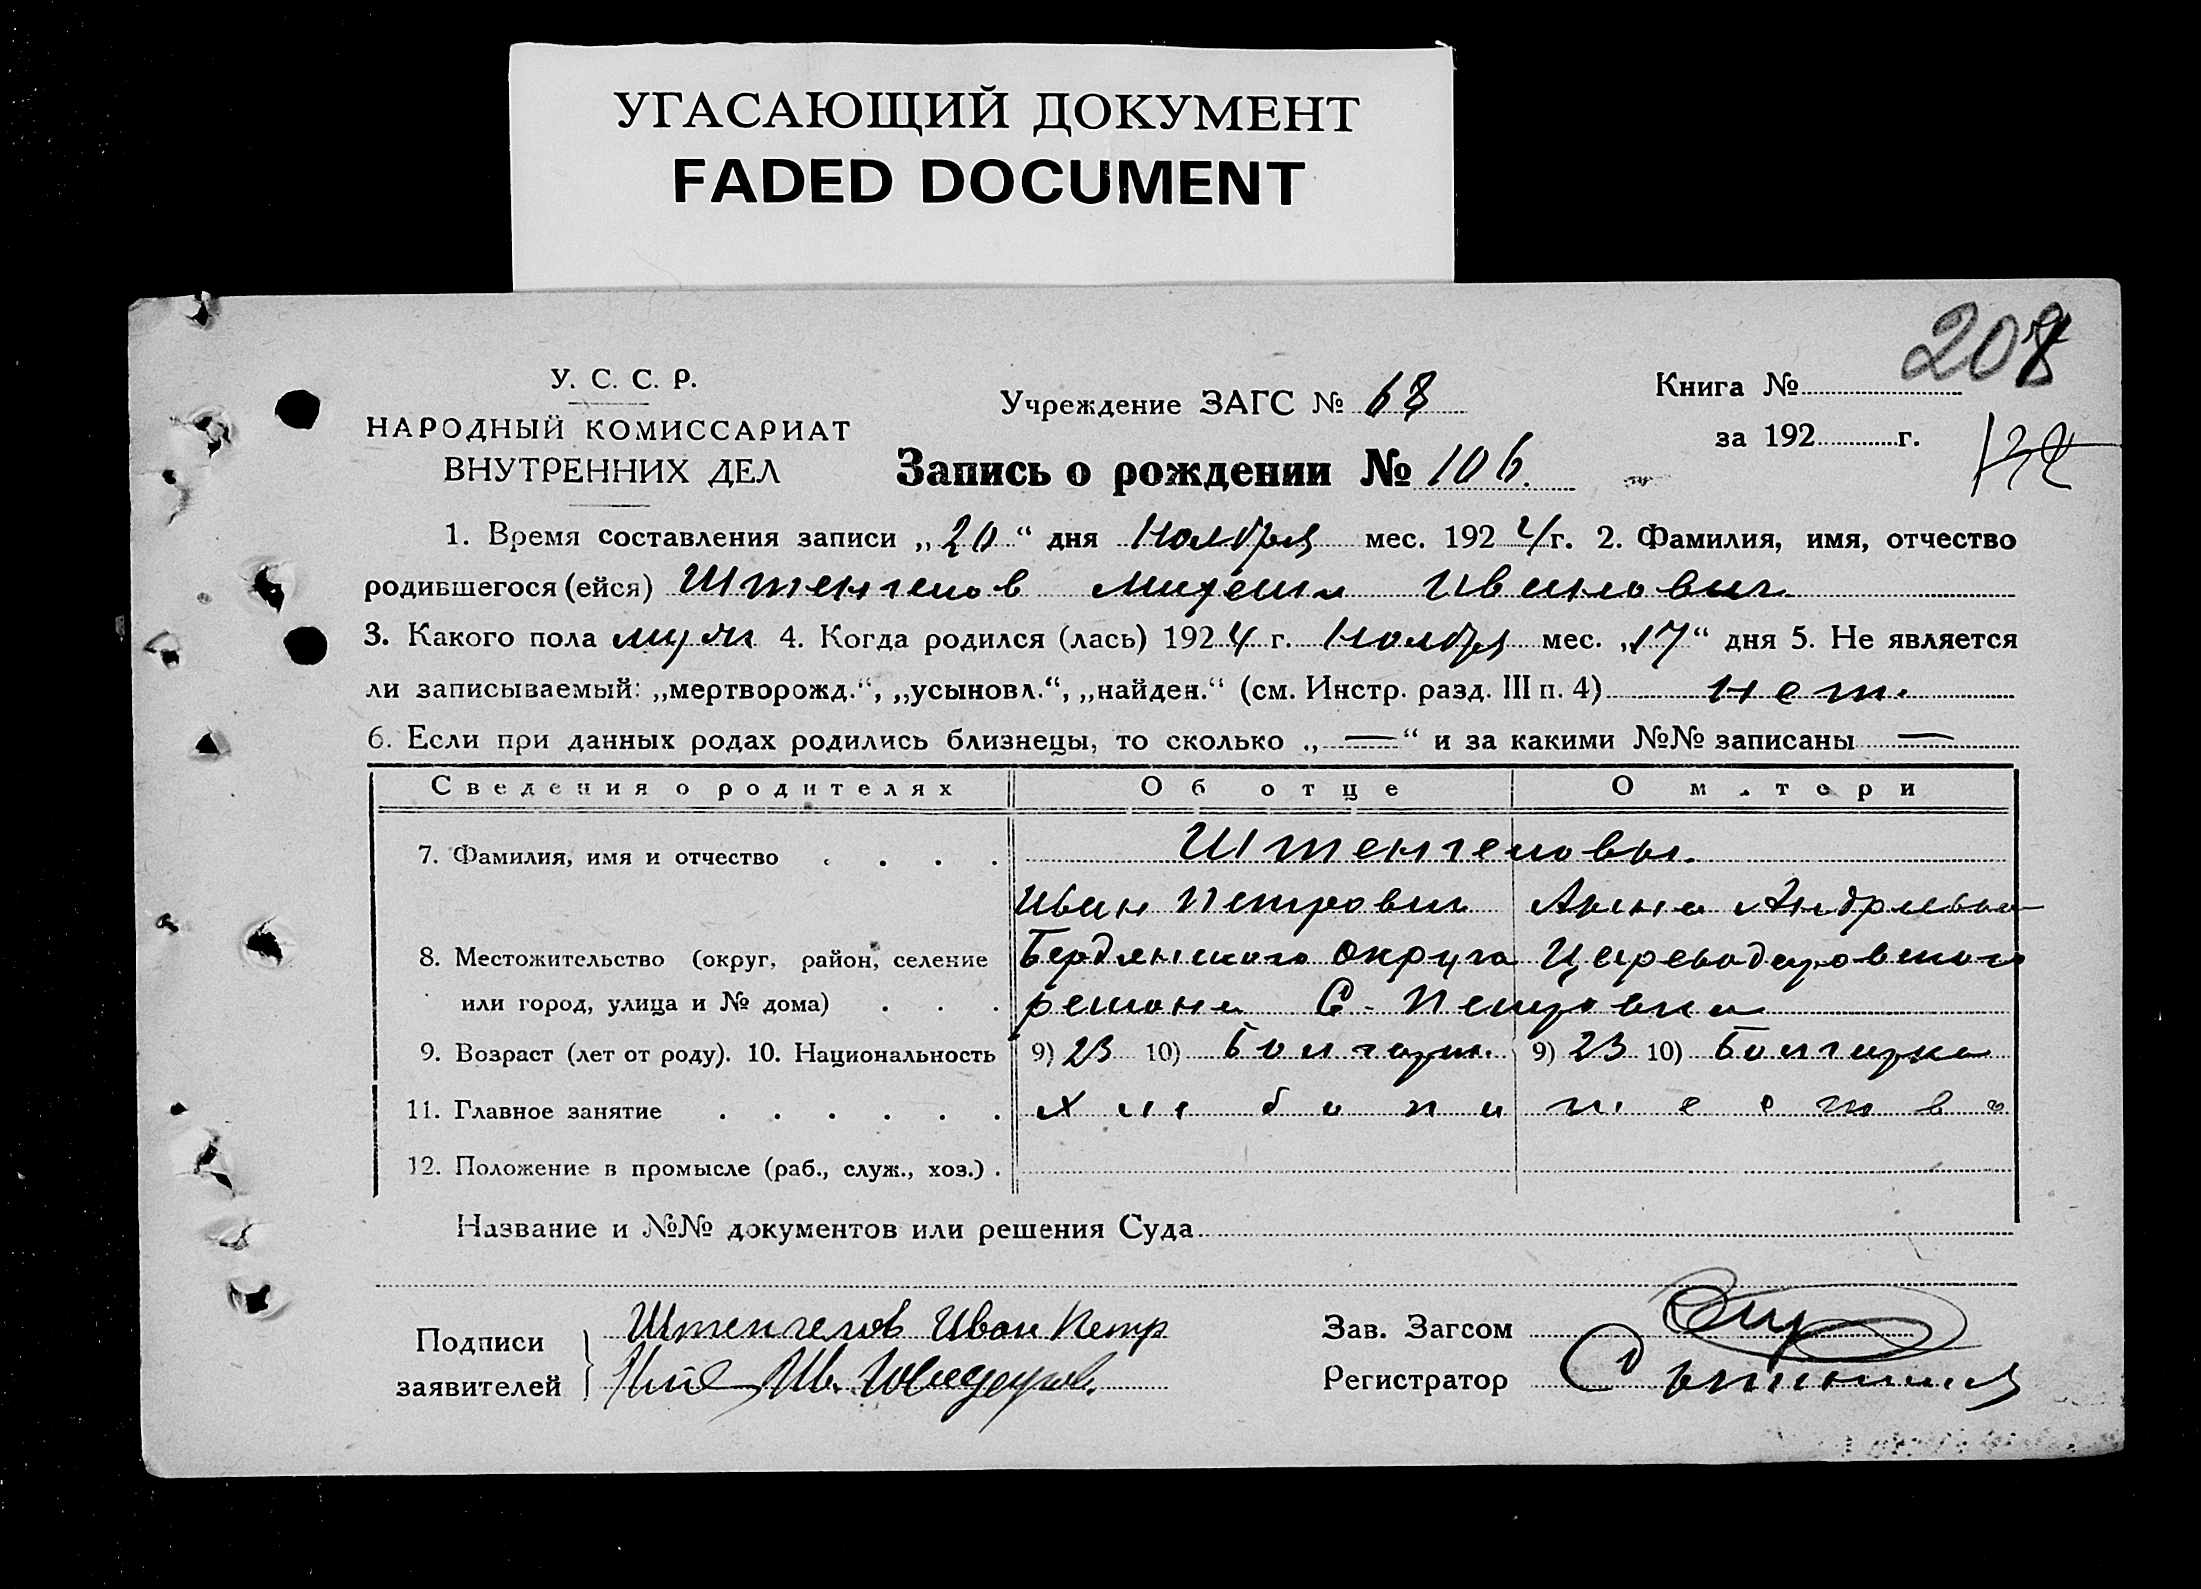 УГАСАЮЩИЙ ДОКУМЕНТ
FADED DOCUMENT
208
У. С. С. Р.
НАРОДНЫЙ КОМИССАРИАТ
ВНУТРЕННИХ ДЕЛ
Учреждение ЗАГС № 68
Книга №
за 192 г.
132
Запись о рождении № 106.
1. Время составления записи „20“ дня Ноября мес. 1924 г. 2. Фамилия, имя, отчество
родившегося (ейся) Штенгелов Михаил Иванович
3. Какого пола муж 4. Когда родился (лась) 1924 г. Ноября мес. „17“ дня 5. Не является
ли записываемый: „мертворожд.“, „усыновл.“, „найден.“ (см. Инстр. разд. III п. 4) нет.
6. Если при данных родах родились близнецы, то сколько „—“ и за какими №№ записаны —
Сведения о родителях Об отце О матери
7. Фамилия, имя и отчество . . . . Штенгеловы.
Иван Петрович Анна Андреевна
8. Местожительство (округ, район, селение Бердянского округа Цареводаровского
или город, улица и № дома) . . . района С. Петровка
9. Возраст (лет от роду). 10. Национальность 9) 23 10) Болгарин. 9) 23 10) Болгарка
11. Главное занятие . . . . . . хлебопашество
12. Положение в промысле (раб., служ., хоз.) .
Название и №№ документов или решения Суда
Подписи
заявителей
Штенгелов Иван Петр
Зав. Загсом
Регистратор